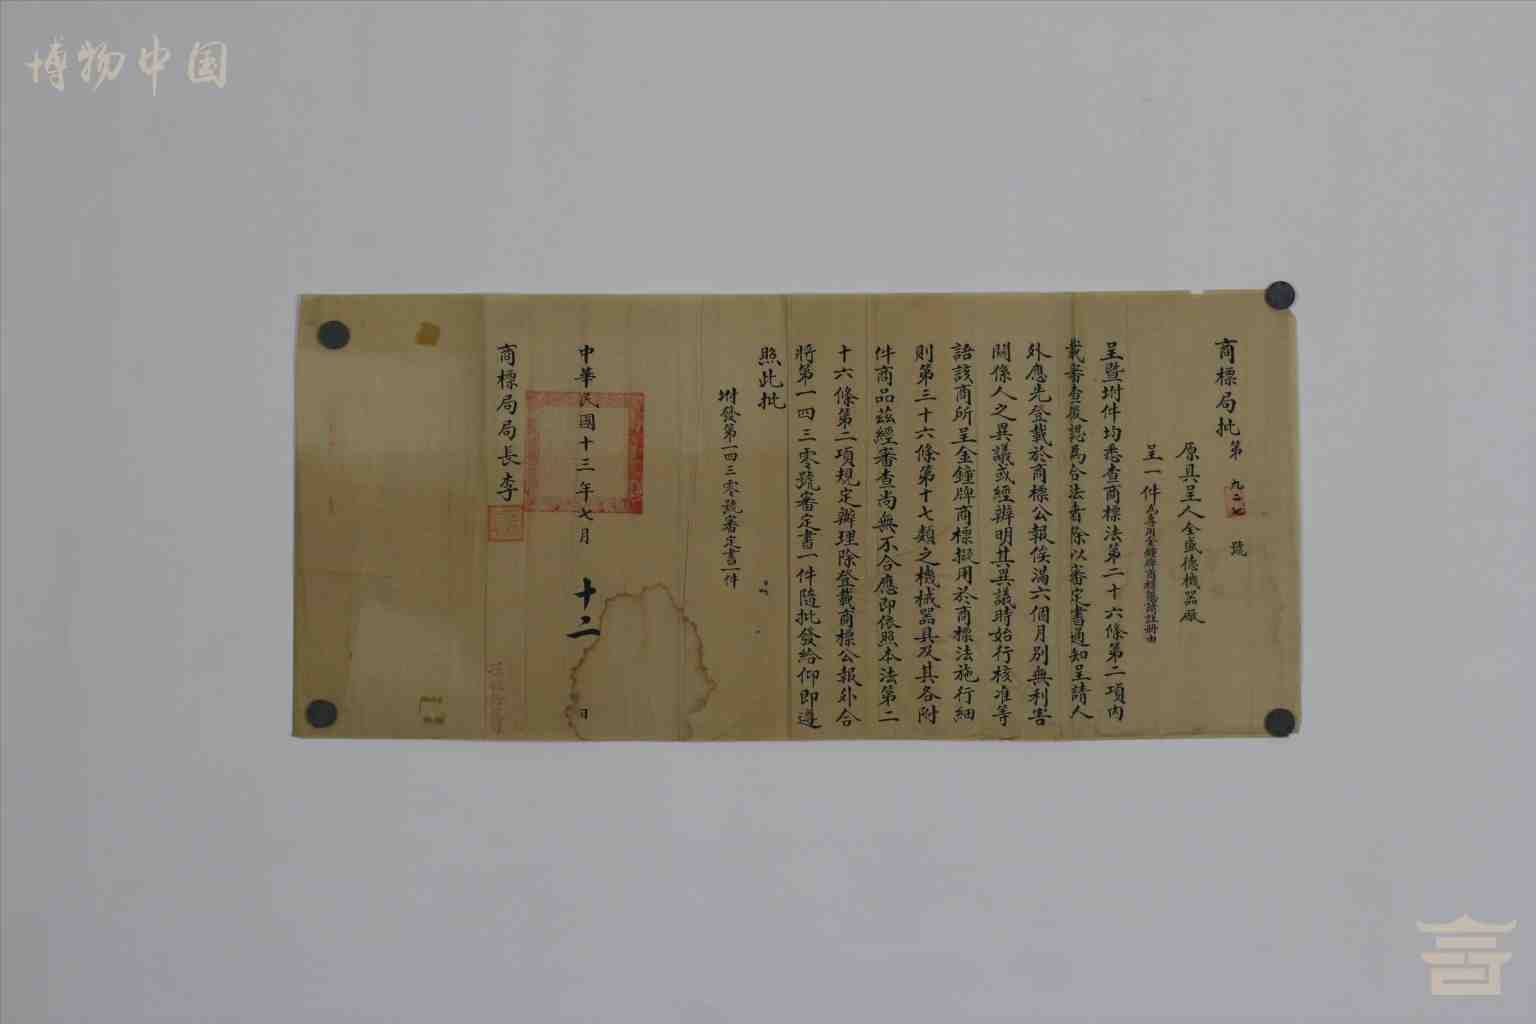 博物中国
商標局批第九二七號
原具呈人金盛德機器廠
呈一件為專用金鐘牌商標懇請註冊由
呈曁坿件均悉查商標法第二十六條第二項內
載審查後認為合法者除以審定書通知呈請人
外應先登載於商標公報俟滿六個月別無利害
關係人之異議或經辨明其異議時始行核准等
語該商所呈金鐘牌商標擬用於商標法施行細
則第三十六條第十七類之機械器具及其各附
件商品茲經審查尚無不合應即依照本法第二
十六條第二項規定辦理除登載商標公報外合
將第一四三零號審定書一件隨批發給仰即遵
照此批
坿發第一四三零號審定書一件
中華民國十三年七月十二日
商標局局長李